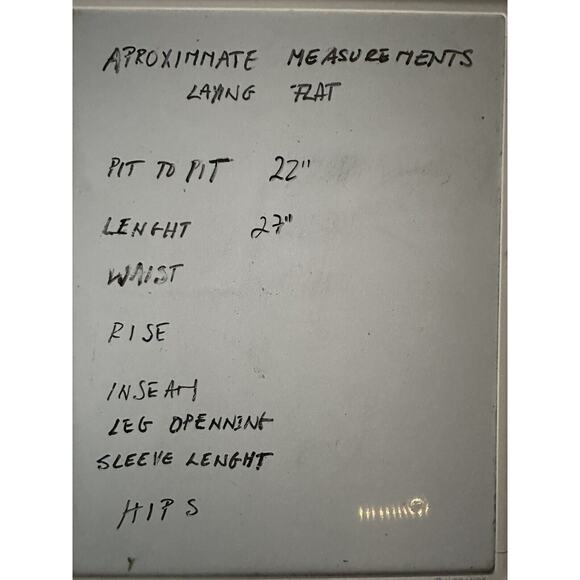 APROXIMMATE MEASUREMENTS
LAYING FLAT
PIT TO PIT 22"
LENGHT 27"
WAIST
RISE
INSEAM
LEG OPENNING
SLEEVE LENGHT
HIPS